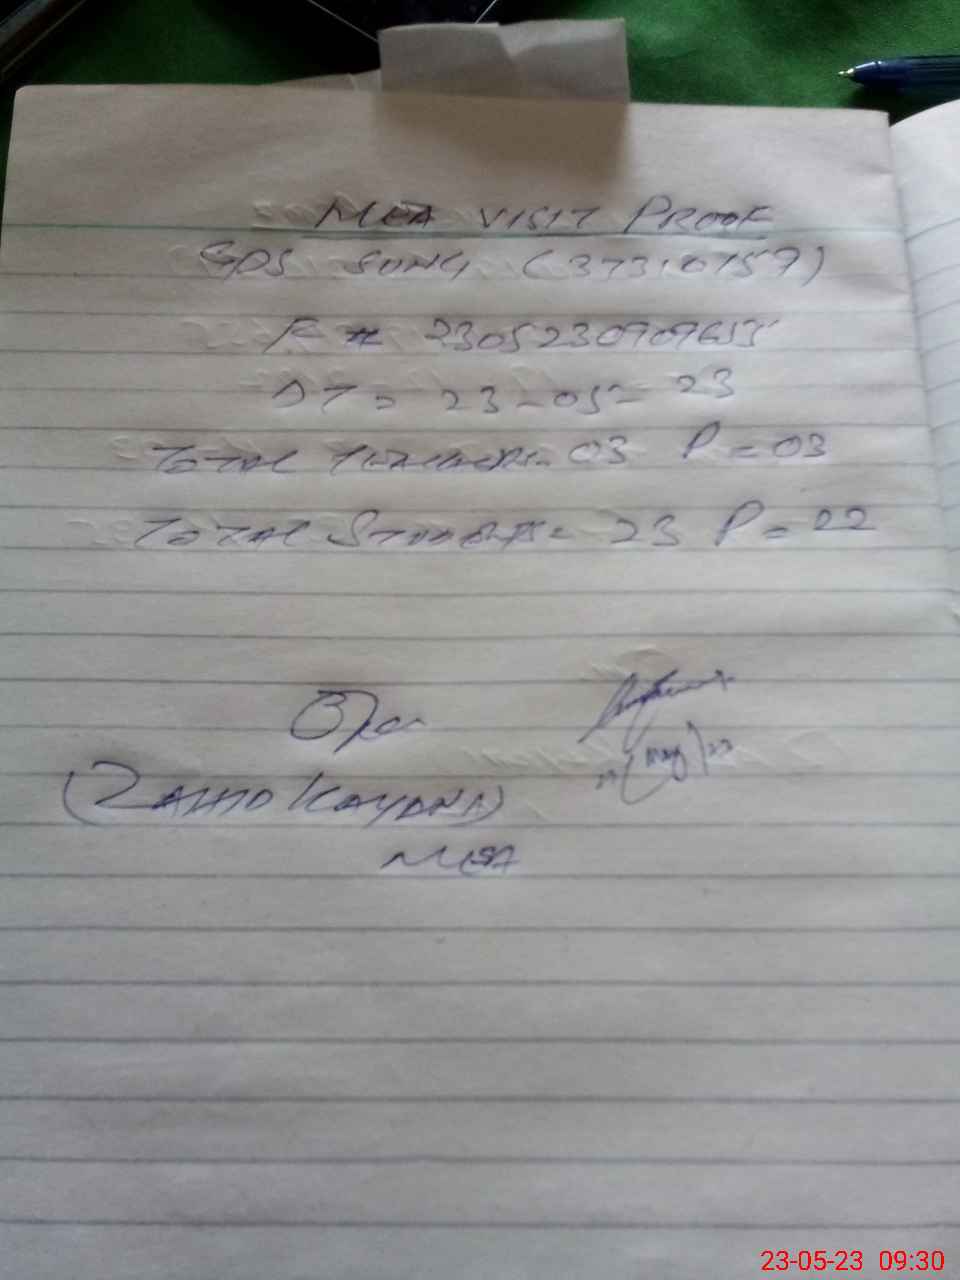 MEA VISIT PROOF
GPS SUNG (37310157)
F # 2305230909655
DT = 23-05-23
TOTAL Teachers = 03 P = 03
TOTAL Students = 23 P = 22
23 May 23
(ZAHID KAYANI)
MEA
23-05-23 09:30